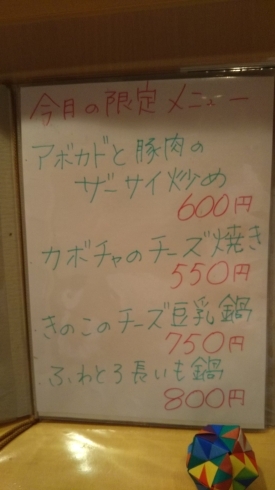 今月の限定メニュー
アボカドと豚肉の
ザーサイ炒め
600円
カボチャのチーズ焼き
550円
きのこのチーズ豆乳鍋
750円
ふわとろ長いも鍋
800円